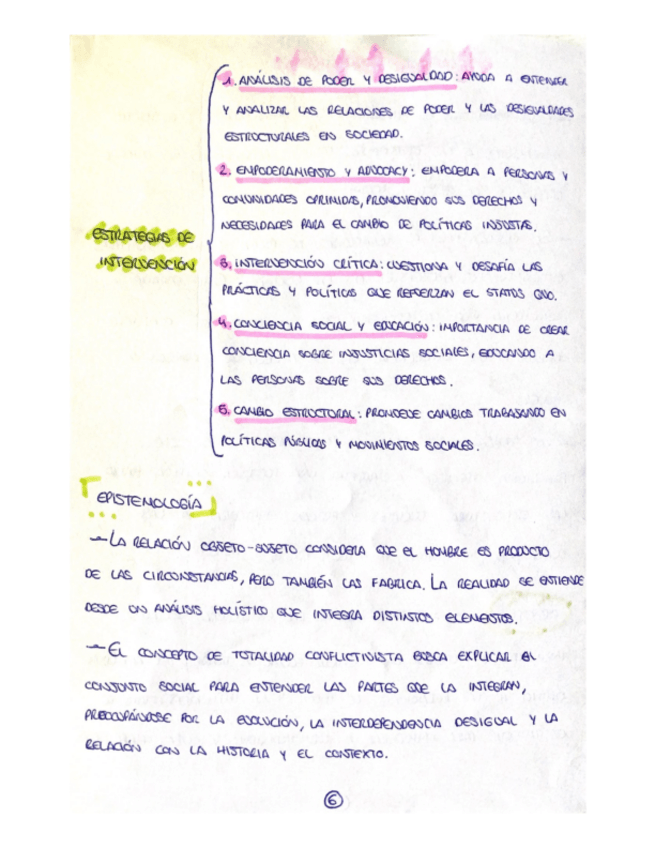 1. ANÁLISIS DE PODER Y DESIGUALDAD: AYUDA A ENTENDER
Y ANALIZAR LAS RELACIONES DE PODER Y LAS DESIGUALDADES
ESTRUCTURALES EN SOCIEDAD.
2. EMPODERAMIENTO Y ADVOCACY: EMPODERA A PERSONAS Y
COMUNIDADES OPRIMIDAS, PROMOVIENDO SUS DERECHOS Y
NECESIDADES PARA EL CAMBIO DE POLÍTICAS INJUSTAS.
ESTRATEGIAS DE
INTERVENCIÓN
3. INTERVENCIÓN CRÍTICA: CUESTIONA Y DESAFÍA LAS
PRÁCTICAS Y POLÍTICAS QUE REFUERZAN EL STATUS QUO.
4. CONCIENCIA SOCIAL Y EDUCACIÓN: IMPORTANCIA DE CREAR
CONCIENCIA SOBRE INJUSTICIAS SOCIALES, EDUCANDO A
LAS PERSONAS SOBRE SUS DERECHOS.
5. CAMBIO ESTRUCTURAL: PROMUEVE CAMBIOS TRABAJANDO EN
POLÍTICAS PÚBLICAS Y MOVIMIENTOS SOCIALES.
EPISTEMOLOGÍA
—LA RELACIÓN OBJETO-SUJETO CONSIDERA QUE EL HOMBRE ES PRODUCTO
DE LAS CIRCUNSTANCIAS, PERO TAMBIÉN LAS FABRICA. LA REALIDAD SE ENTIENDE
DESDE UN ANÁLISIS HOLÍSTICO QUE INTEGRA DISTINTOS ELEMENTOS.
—EL CONCEPTO DE TOTALIDAD CONFLICTIVISTA BUSCA EXPLICAR EL
CONJUNTO SOCIAL PARA ENTENDER LAS PARTES QUE LA INTEGRAN,
PREOCUPÁNDOSE POR LA EVOLUCIÓN, LA INTERDEPENDENCIA DESIGUAL Y LA
RELACIÓN CON LA HISTORIA Y EL CONTEXTO.
6